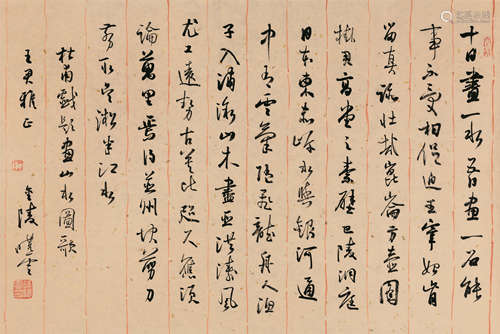 十日畫一水五日畫一石能
事不受相促迫王宰始肯
留真跡壯哉崑崙方壺圖
挂君高堂之素壁巴陵洞庭
日本東赤岸水與銀河通
中有雲氣隨飛龍舟人漁
子入浦漵山木盡亞洪濤風
尤工遠勢古莫比咫尺應須
論萬里焉得并州快剪刀
剪取吳淞半江水
杜甫戲題畫山水圖歌
王君雅正
金陵